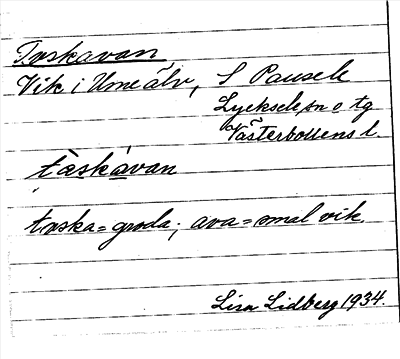 Tvskavan
Vik i Ume älv, S Pausele
Lycksele sn o tg
Västerbottens l.
tàskávan
tvska = groda; ava = smal vik
Lisa Lidberg 1934.